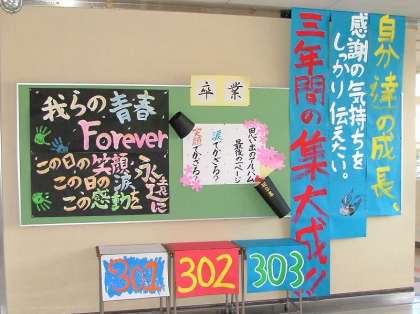 自分達の成長、
感謝の気持ちを
しっかり伝えたい。
三年間の集大成!!
卒業
思い出のアルバム
最後のページ
涙でかざる?
笑顔でかざる?
我らの青春
Forever
この日の笑顔
この日の涙
この日の感動を
永遠に
301
302
303